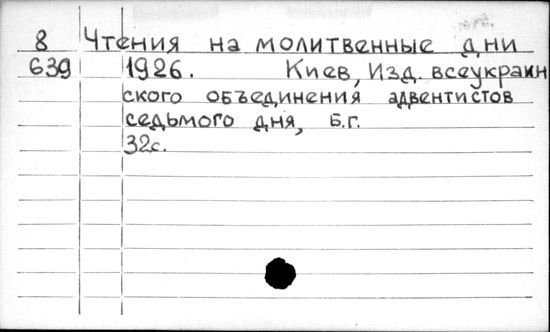 8 Чтения на молитвенные дни
639 1926. Киев, Изд. всеукраин
ского объединения адвентистов
седьмого дня, б.г.
32с.